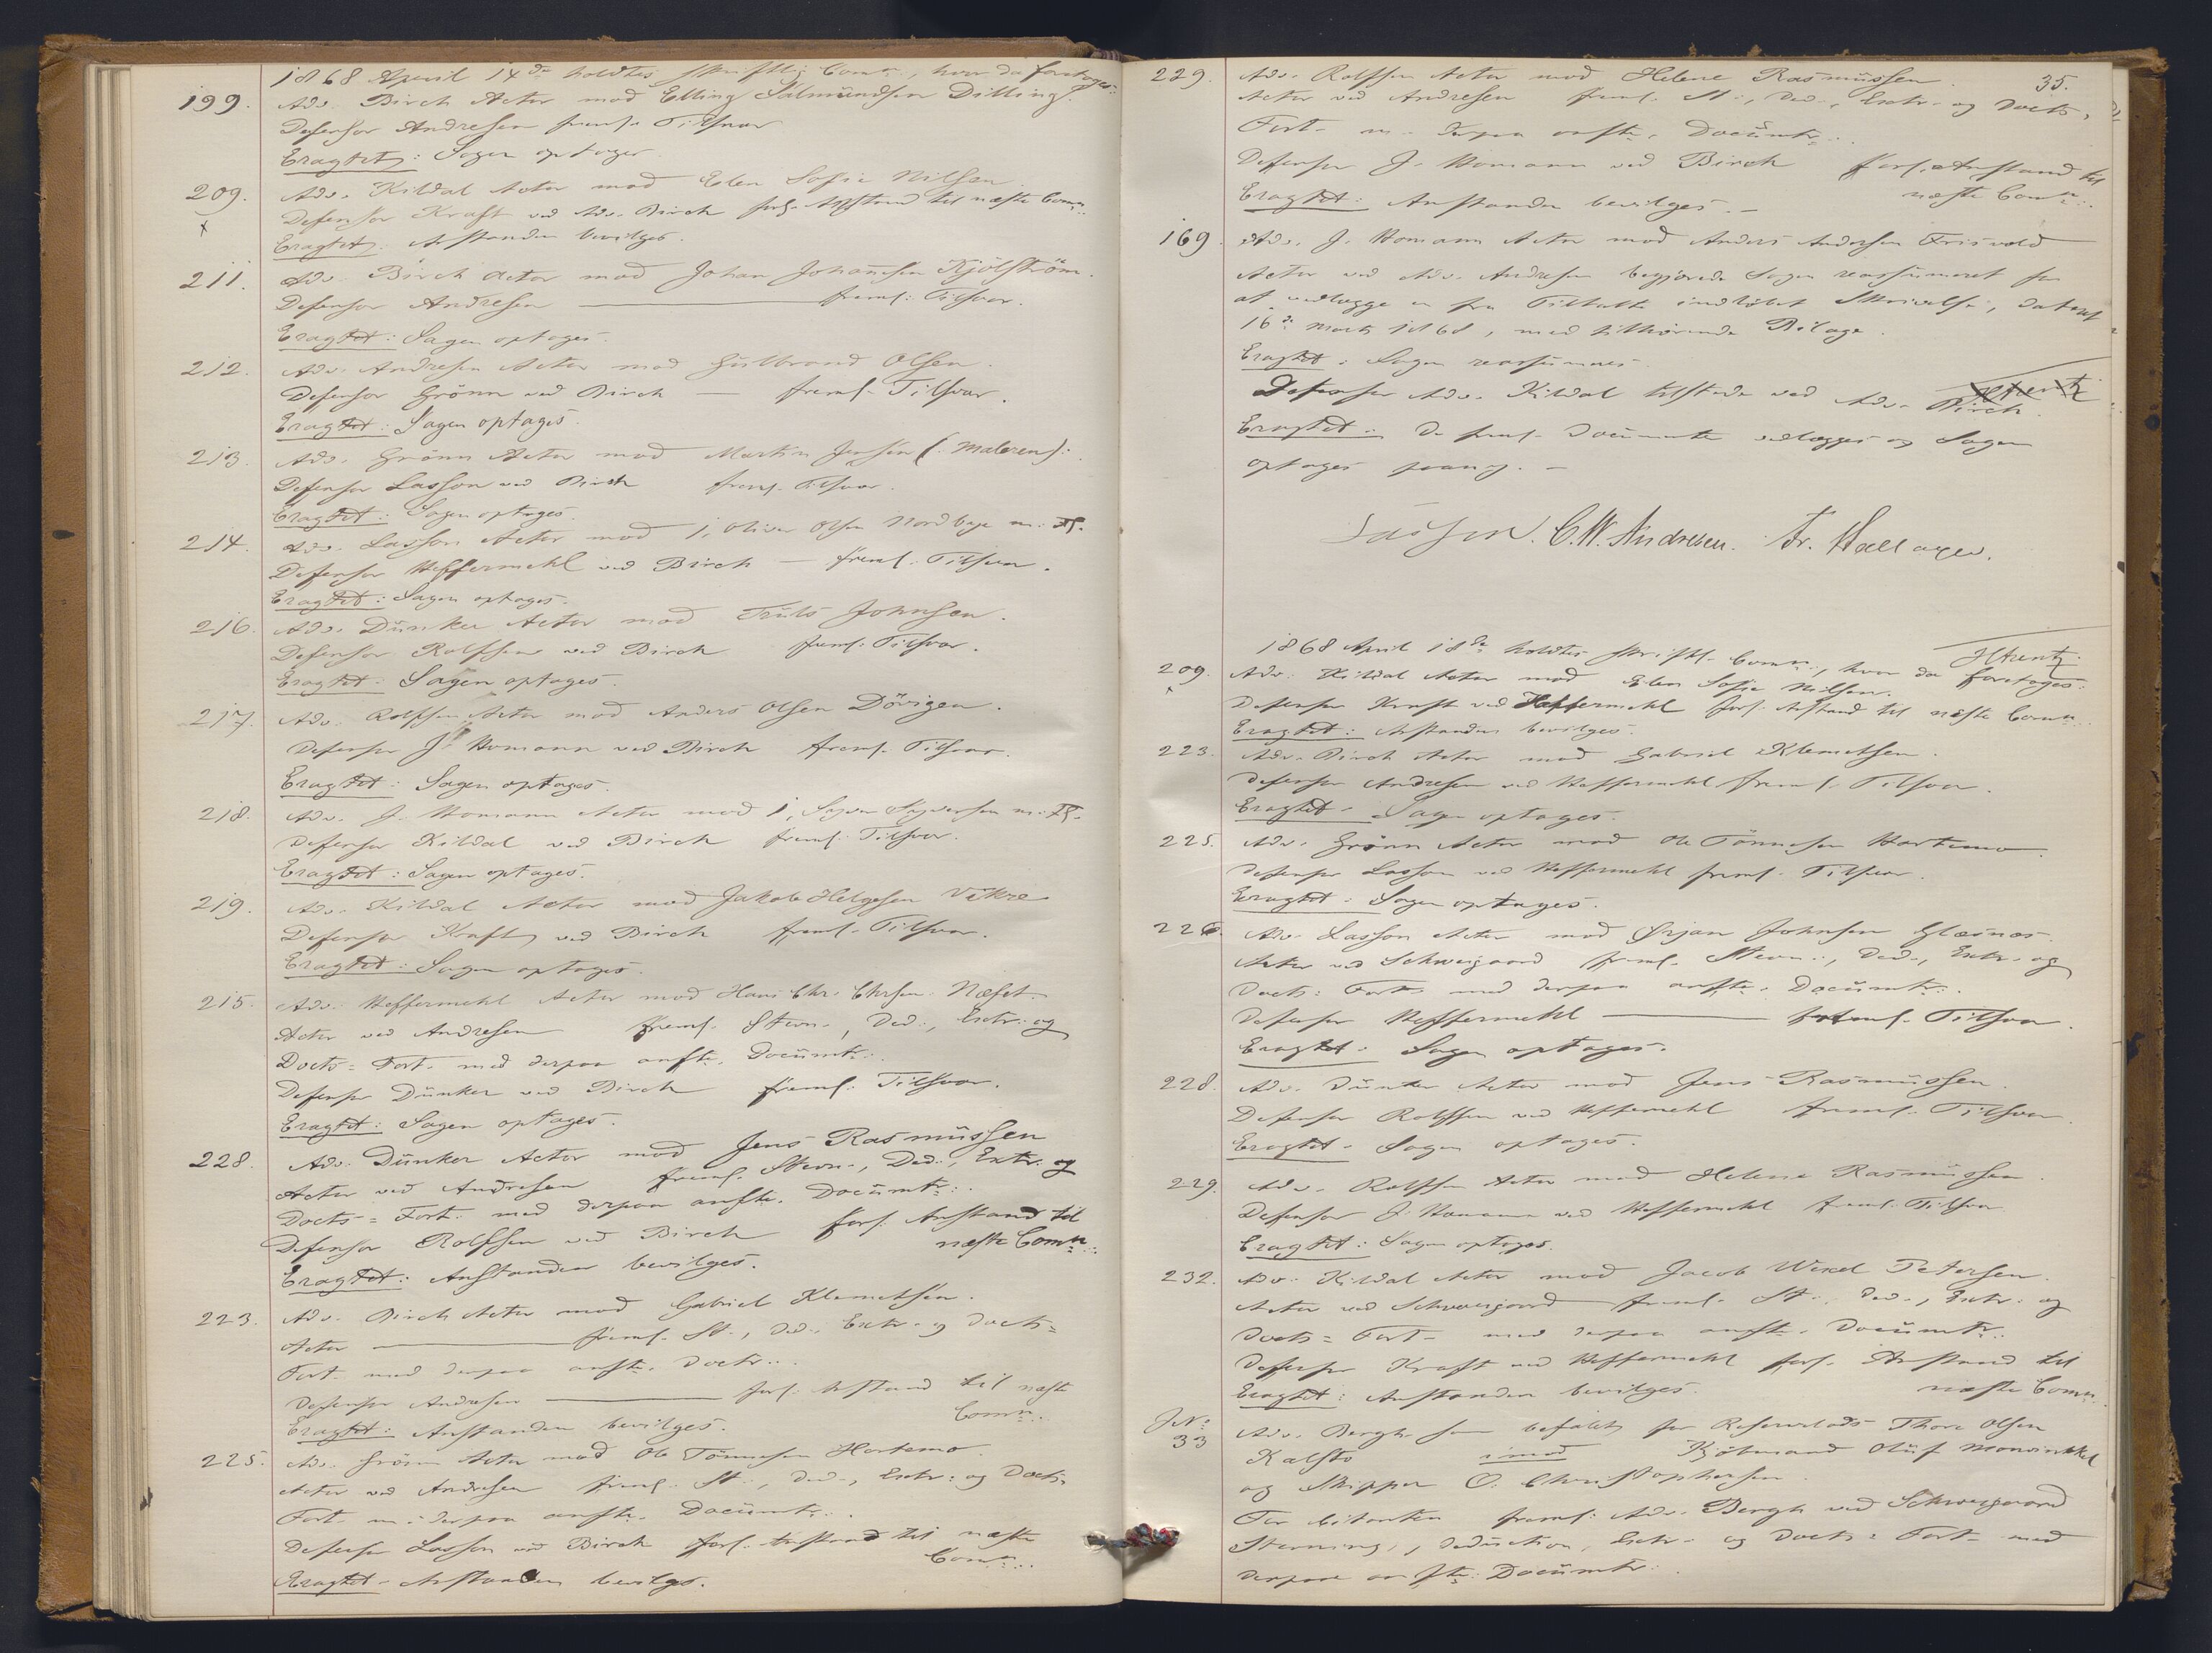 1868 April 14de holdtes skriftlig Comn:, hvor da foretoges:
199. Adv. Birch Actor mod Elling Salmundsen Dilling.
Defensor Andresen freml. Tilsvar
Eragtet: Sagen optages.
209. Adv. Kildal Actor mod Elen Sofie Nilsen.
Defensor Kraft ved Adv. Birch forl. Anstand til næste Comn:.
Eragtet: Anstanden bevilges.
211. Adv. Birch Actor mod Johan Johannsen Kjölström.
Defensor Andresen — freml: Tilsvar.
Eragtet: Sagen optages.
212. Adv. Andresen Actor mod Gulbrand Olsen.
Defensor Grönn ved Birch — freml. Tilsvar.
Eragtet: Sagen optages.
213. Adv. Grönn Actor mod Martin Jensen (: Maleren):
Defensor Lasson ved Birch freml. Tilsvar.
Eragtet: Sagen optages.
214. Adv. Lasson Actor mod 1, Oliver Olsen Nordbye m: Fl.
Defensor Heffermehl ved Birch — freml. Tilsvar.
Eragtet: Sagen optages.
216. Adv. Dünker Actor mod Truls Johnsen.
Defensor Rolfsen ved Birch freml. Tilsvar.
Eragtet: Sagen optages.
217. Adv. Rolfsen Actor mod Anders Olsen Dövigen.
Defensor J. Homann ved Birch freml. Tilsvar.
Eragtet: Sagen optages.
218. Adv. J. Homann Actor mod 1, m: Fl.
Defensor Kildal ved Birch freml. Tilsvar.
Eragtet: Sagen optages.
219. Adv. Kildal Actor mod Jakob Helgesen Vikre
Defensor Kraft ved Birch freml. Tilsvar.
Eragtet: Sagen optages.
215. Adv. Heffermehl Actor mod Hans Chr. Chrsen. Næset.
Actor ved Andresen freml. Stevn., Ded., Extr. og
Docts= Fort. med derpaa anfte. Documtr:.
Defensor Dünker ved Birch freml. Tilsvar.
Eragtet: Sagen optages.
228. Adv. Dünker Actor mod Jens Rasmüssen
Actor ved Andresen freml. Stevn., Ded., Extr. og
Docts= Fort. med derpaa anfte. Documtr:.
Defensor Rolfsen ved Birch forl. Anstand til
næste Comn:.
Eragtet: Anstanden bevilges.
223. Adv. Birch Actor mod Gabriel Klemetsen.
Actor — freml. St., Ded., Extr. og Docts=
Fort. med derpaa anfte. Doctr:.
Defensor Andresen — forl. Anstand til næste
Comn:.
Eragtet: Anstanden bevilges.
225. Adv. Grönn Actor mod Ole Tönnesen Hortemo.
Actor ved Andresen freml. St., Ded., Extr. og Docts=
Fort. m. derpaa anfte. Documtr:.
Defensor Lasson ved Birch forl. Anstand til næste
Comn:.
Eragtet. Anstanden bevilges.
35.
229. Adv. Rolfsen Actor mod Helene Rasmüssen
Actor ved Andresen freml. St., Ded., Extr. og Docts=
Fort. m. derpaa anfte. Documtr:.
Defensor J. Homann ved Birch forl. Anstand til
næste Comn:.
Eragtet: Anstanden bevilges. —
169. Adv. J. Homann Actor mod Anders Andersen Frisvold
Actor ved Adv. Andresen begjærede Sagen reassumeret for
at vedlægge en fra Tiltalte indlöbet Skrivelse, dateret
16de Marts 1868, med tilhörende Bilage.
Eragtet: Sagen reassumeres.
Defensor Adv. Kildal tilstede ved Adv. Birch.
Eragtet: De freml. Documenter vedlægges og Sagen
optages paany. —
Lasson. C.W. Andresen. Fr. Hallager.
HHrentz
1868 April 18de holdtes skriftl. Comn:, hvor da foretoges:
209. Adv. Kildal Actor mod Elen Sofie Nilsen.
Defensor Kraft ved Heffermehl forl. Anstand til næste Comn:.
Eragtet: Anstanden bevilges.
223. Adv. Birch Actor mod Gabriel Klemetsen.
Defensor Andresen ved Heffermehl freml. Tilsvar.
Eragtet. Sagen optages.
225. Adv. Grönn Actor mod Ole Tönnesen Hortemo.
Defensor Lasson ved Heffermehl freml. Tilsvar.
Eragtet: Sagen optages.
226. Adv. Lasson Actor mod Ørjan Johnsen Glæsnæs.
Actor ved Schweigaard freml. Stevn., Ded., Extr. og
Docts= Fort. med derpaa anfte. Documtr:.
Defensor Heffermehl — freml. Tilsvar.
Eragtet. Sagen optages.
228. Adv. Dünker Actor mod Jens Rasmüssen.
Defensor Rolfsen ved Heffermehl freml. Tilsvar
Eragtet. Sagen optages.
229. Adv. Rolfsen Actor mod Helene Rasmüssen.
Defensor J. Homann ved Heffermehl freml. Tilsvar
Eragtet: Sagen optages.
232. Adv. Kildal Actor mod Jacob Wexel Petersen.
Actor ved Schweigaard freml. St., Ded., Extr. og
Docts= Fort. med derpaa anfte. Documtr:.
Defensor Kraft ved Heffermehl forl. Anstand til
næste Comn:.
Eragtet: Anstanden bevilges.
33 Adv. Bergh som befalet for Reservelods Thore Olsen
Kalstö imod Kjöbmand Oluf Monwinkel
og Skipper O. Christophersen.
For Citanten freml. Adv. Bergh ved Schweigaard
Stevning, Deduction, Extr. og Docts= Fort. med
derpaa anfte. Documtr:.